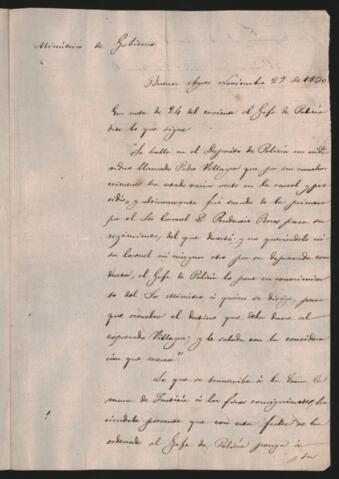 Ministerio de Gobierno
Buenos Ayres Noviembre 27 de 18
En nota de 24 del corriente el Gefe de Policia
dice lo que sigue
"Se halla en el Depósito de Policia un indi-
viduo llamado Pedro Villagra que por sus muchos
crimenes ha estado varias veces en la carcel y pre-
sidio, y ultimamente fué sacado de la primera
por el Sor Coronel D. Prudencio Rosas para su
regimiento, del que desertó; y no queriendolo ni
Coronel ni ningun otro por su depravada con-
ducta, el Gefe de Policia lo pone en conocimien-
to del Sor Ministro á quien se dirige, para
que resuelva el destino que debe darse al
expresado Villagra; y le saluda con la considera-
cion que merece."
Lo que se transcribe á la Exma Ca-
mara de Justicia á los fines consiguientes, ha-
ciendole presente que con esta fecha se ha
ordenado al Gefe de Policia ponga á
su